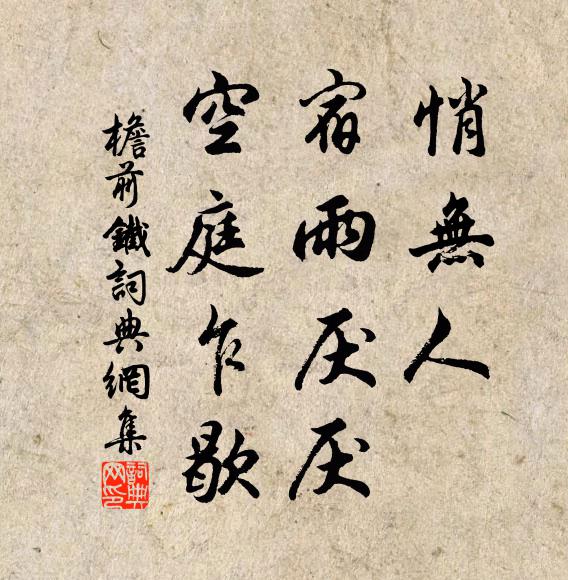 悄無人
宿雨厌厌
空庭乍歇
檐前鐵詞典網集
詞典网印